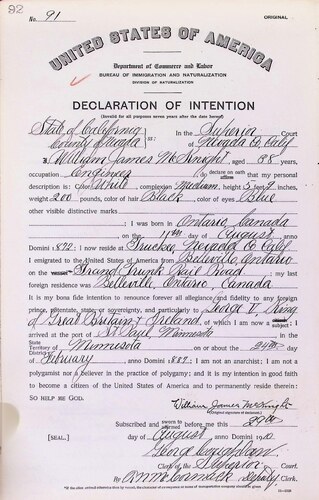 92
No. 91
ORIGINAL
UNITED STATES OF AMERICA
Department of Commerce and Labor
BUREAU OF IMMIGRATION AND NATURALIZATION
DIVISION OF NATURALIZATION
DECLARATION OF INTENTION
(Invalid for all purposes seven years after the date hereof)
State of California
County of Nevada ss:
In the Superior Court
of Nevada Co, Calif
I, William James McKnight, aged 38 years,
occupation Engineer, do declare on oath that my personal
description is: Color White, complexion Medium, height 5 feet 9 inches,
weight 200 pounds, color of hair Black, color of eyes Blue
other visible distinctive marks
I was born in Ontario, Canada
on the 11th day of August, anno
Domini 1872; I now reside at Truckee, Nevada Co Calif
I emigrated to the United States of America from Belleville, Ontario
on the vessel Grand Trunk Rail Road; my last
foreign residence was Belleville, Ontario, Canada
It is my bona fide intention to renounce forever all allegiance and fidelity to any foreign
prince, potentate, state, or sovereignty, and particularly to George V, King
of Great Britain & Ireland, of which I am now a subject; I
arrived at the port of St Paul, Minnesota, in the
State Territory District of Minnesota on or about the 24th day
of February, anno Domini 1889; I am not an anarchist; I am not a
polygamist nor a believer in the practice of polygamy; and it is my intention in good faith
to become a citizen of the United States of America and to permanently reside therein:
SO HELP ME GOD.
William James McKnight
(Original signature of declarant.)
Subscribed and sworn to affirmed before me this 29th
[SEAL.] day of August, anno Domini 1910
George
Clerk of the Superior Court.
By Deputy Clerk.